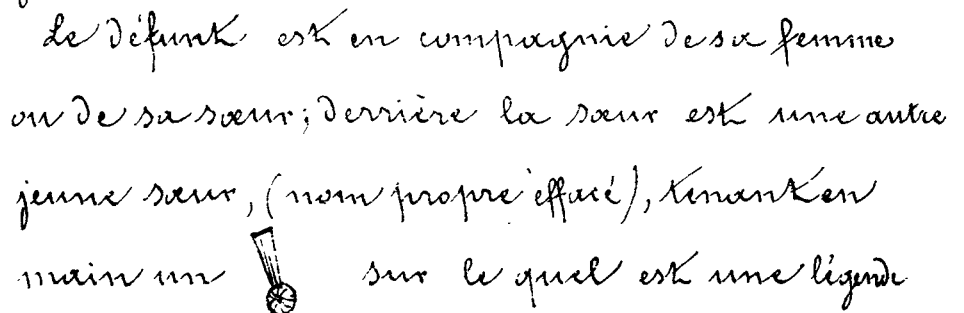 Le défunt est en compagnie de sa femme
ou de sa sœur; derrière la sœur est une autre
jeune sœur, (nom propre effacé), tenant en
main un sur le quel est une légende